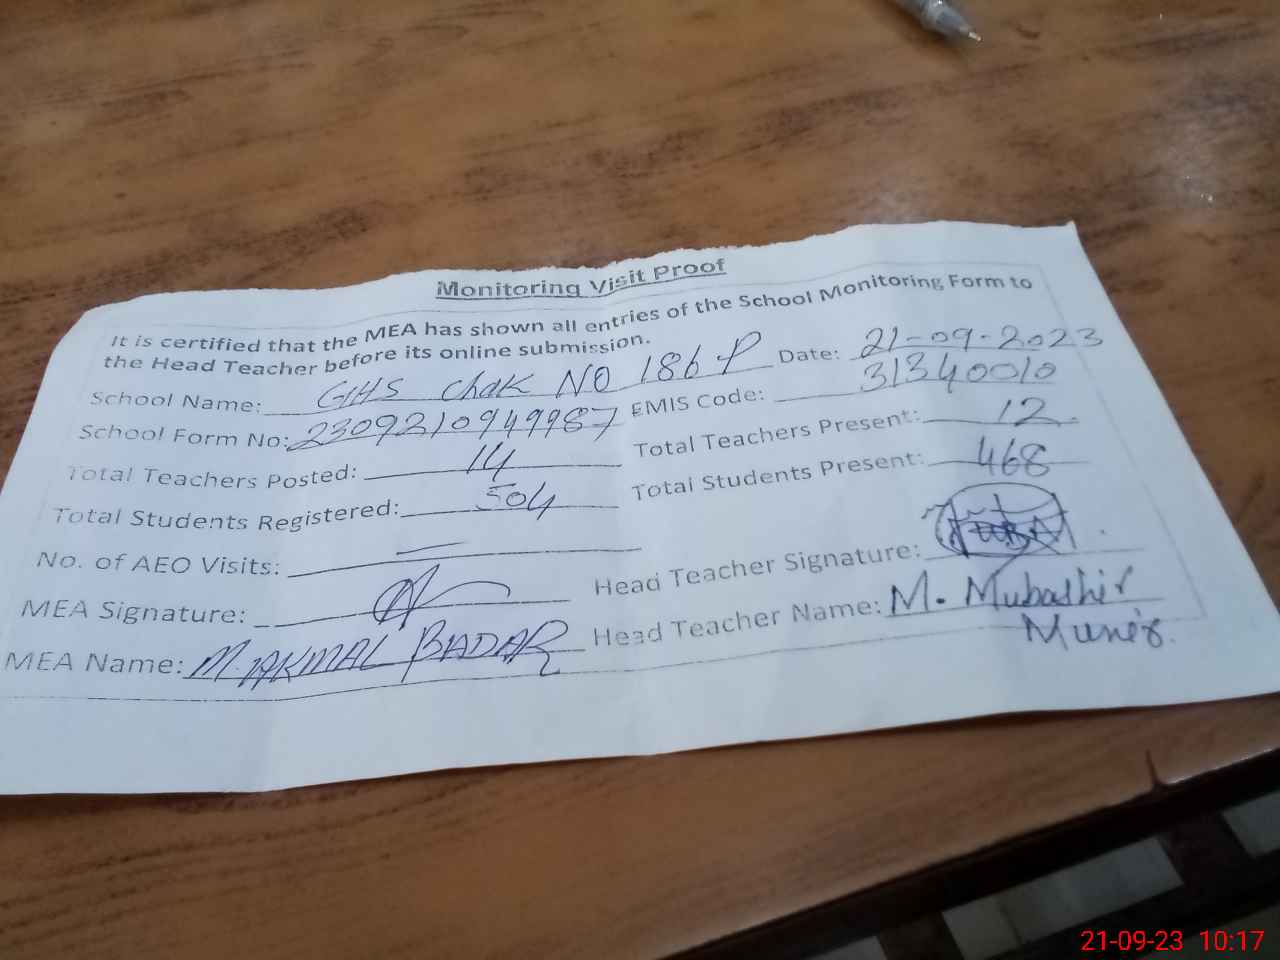 Monitoring Visit Proof
It is certified that the MEA has shown all entries of the School Monitoring Form to
the Head Teacher before its online submission.
School Name: GHS Chak NO 186 P Date: 21-09-2023
School Form No: 2309210949987 EMIS Code: 31340010
Total Teachers Posted: 14 Total Teachers Present: 12
Total Students Registered: 504 Total Students Present: 468
No. of AEO Visits: —
MEA Signature: Head Teacher Signature:
MEA Name: M. AKMAL BADAR Head Teacher Name: M. Mubashir
Munir.
21-09-23 10:17